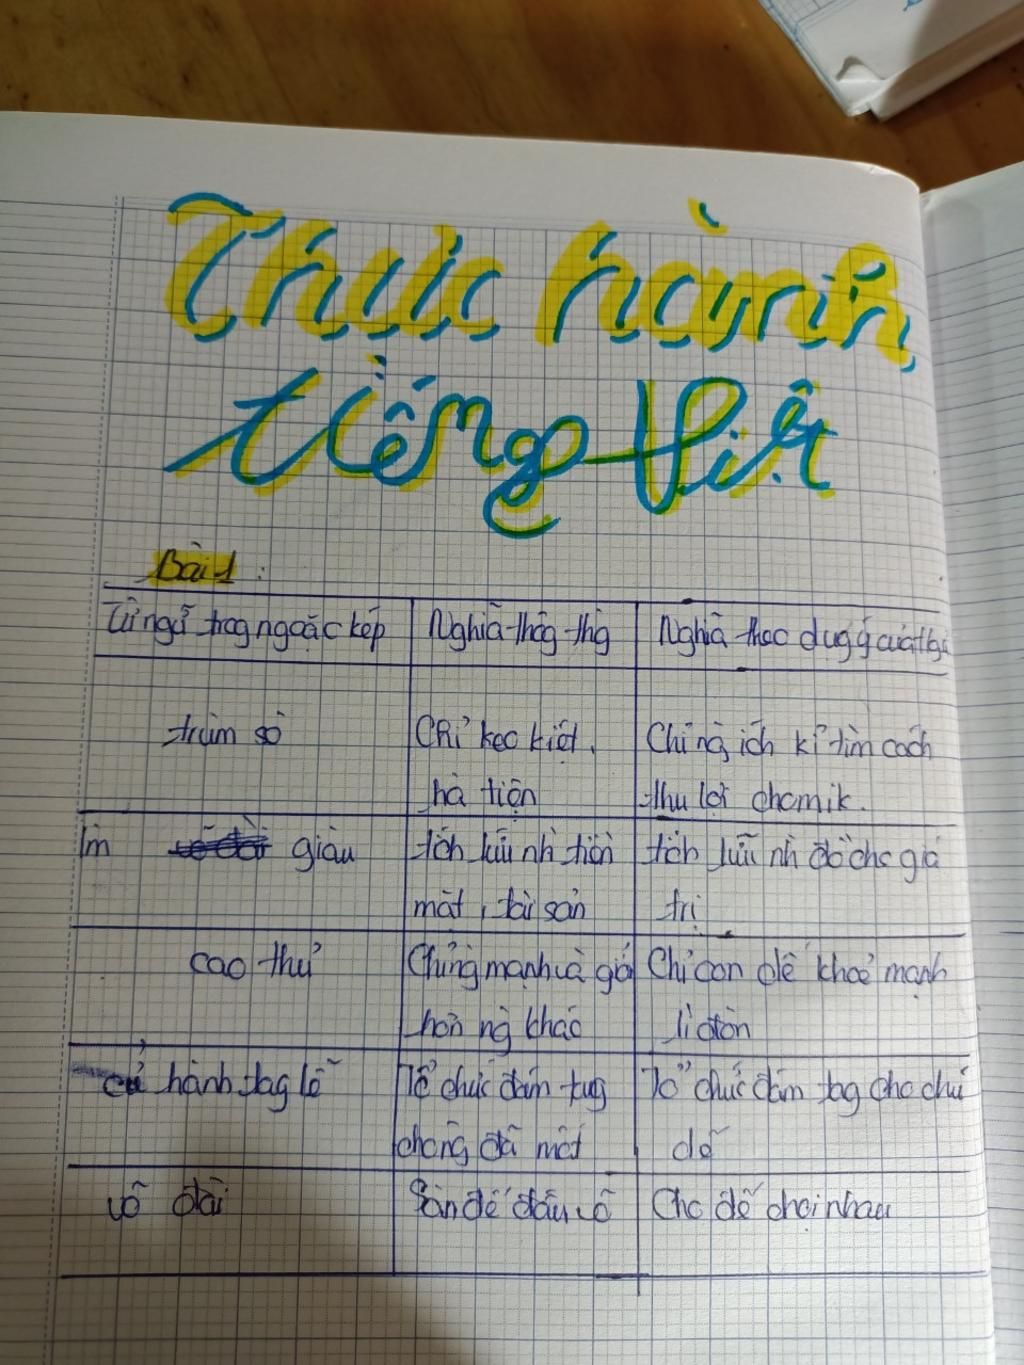 Thực hành
tiếng Việt
Bài 1:
Từ ngữ trog ngoặc kép
Nghĩa thôg thg
Nghĩa theo dug ý của
trùm sò
Chỉ keo kiệt,
hà tiện
Chỉ ng ích kỉ tìm cách
thu lợi cho mik.
làm giàu
tích lũy nh tiền
mặt, tài sản
tích lũy nh đồ chơ giá
trị
cao thủ
Chỉ ng mạnh và giỏi
hơn ng khác
Chỉ con dế khoẻ mạnh
lì đòn
cử hành tag lễ
Tổ chức đám tag
chong đã mất
Tổ chức đám tag cho chú
dế
võ đài
Sàn để đấu võ
Cho dế chọi nhau